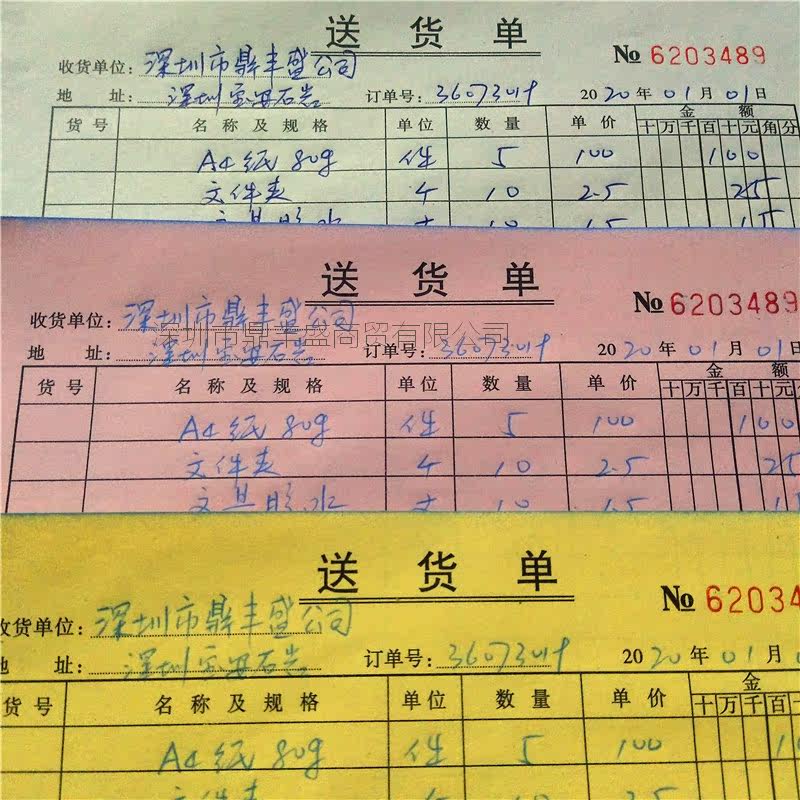 送货单
№ 6203489
收货单位: 深圳市鼎丰盛公司
地 址: 深圳宝安石岩 订单号: 2020年01月01日
货号 名称及规格 单位 数量 单价 金额
十万千百十元角分
A4纸80g 件 5 100 100
文件夹 个 10 2.5 25
文具胶水 10 1.5 15
送货单
№ 6203489
收货单位: 深圳市鼎丰盛公司
深圳市鼎丰盛商贸有限公司
地 址: 深圳宝安石岩 订单号: 2020年01月01日
货号 名称及规格 单位 数量 单价 金额
十万千百十元
A4纸80g 件 5 100 100
文件夹 个 10 2.5 25
文具胶水 10 1.5 15
送货单
№ 62034
收货单位: 深圳市鼎丰盛公司
地 址: 深圳宝安石岩 订单号: 2020年01月
货号 名称及规格 单位 数量 单价 金
十万千百十
A4纸80g 件 5 100
文件夹 个 10 2.5